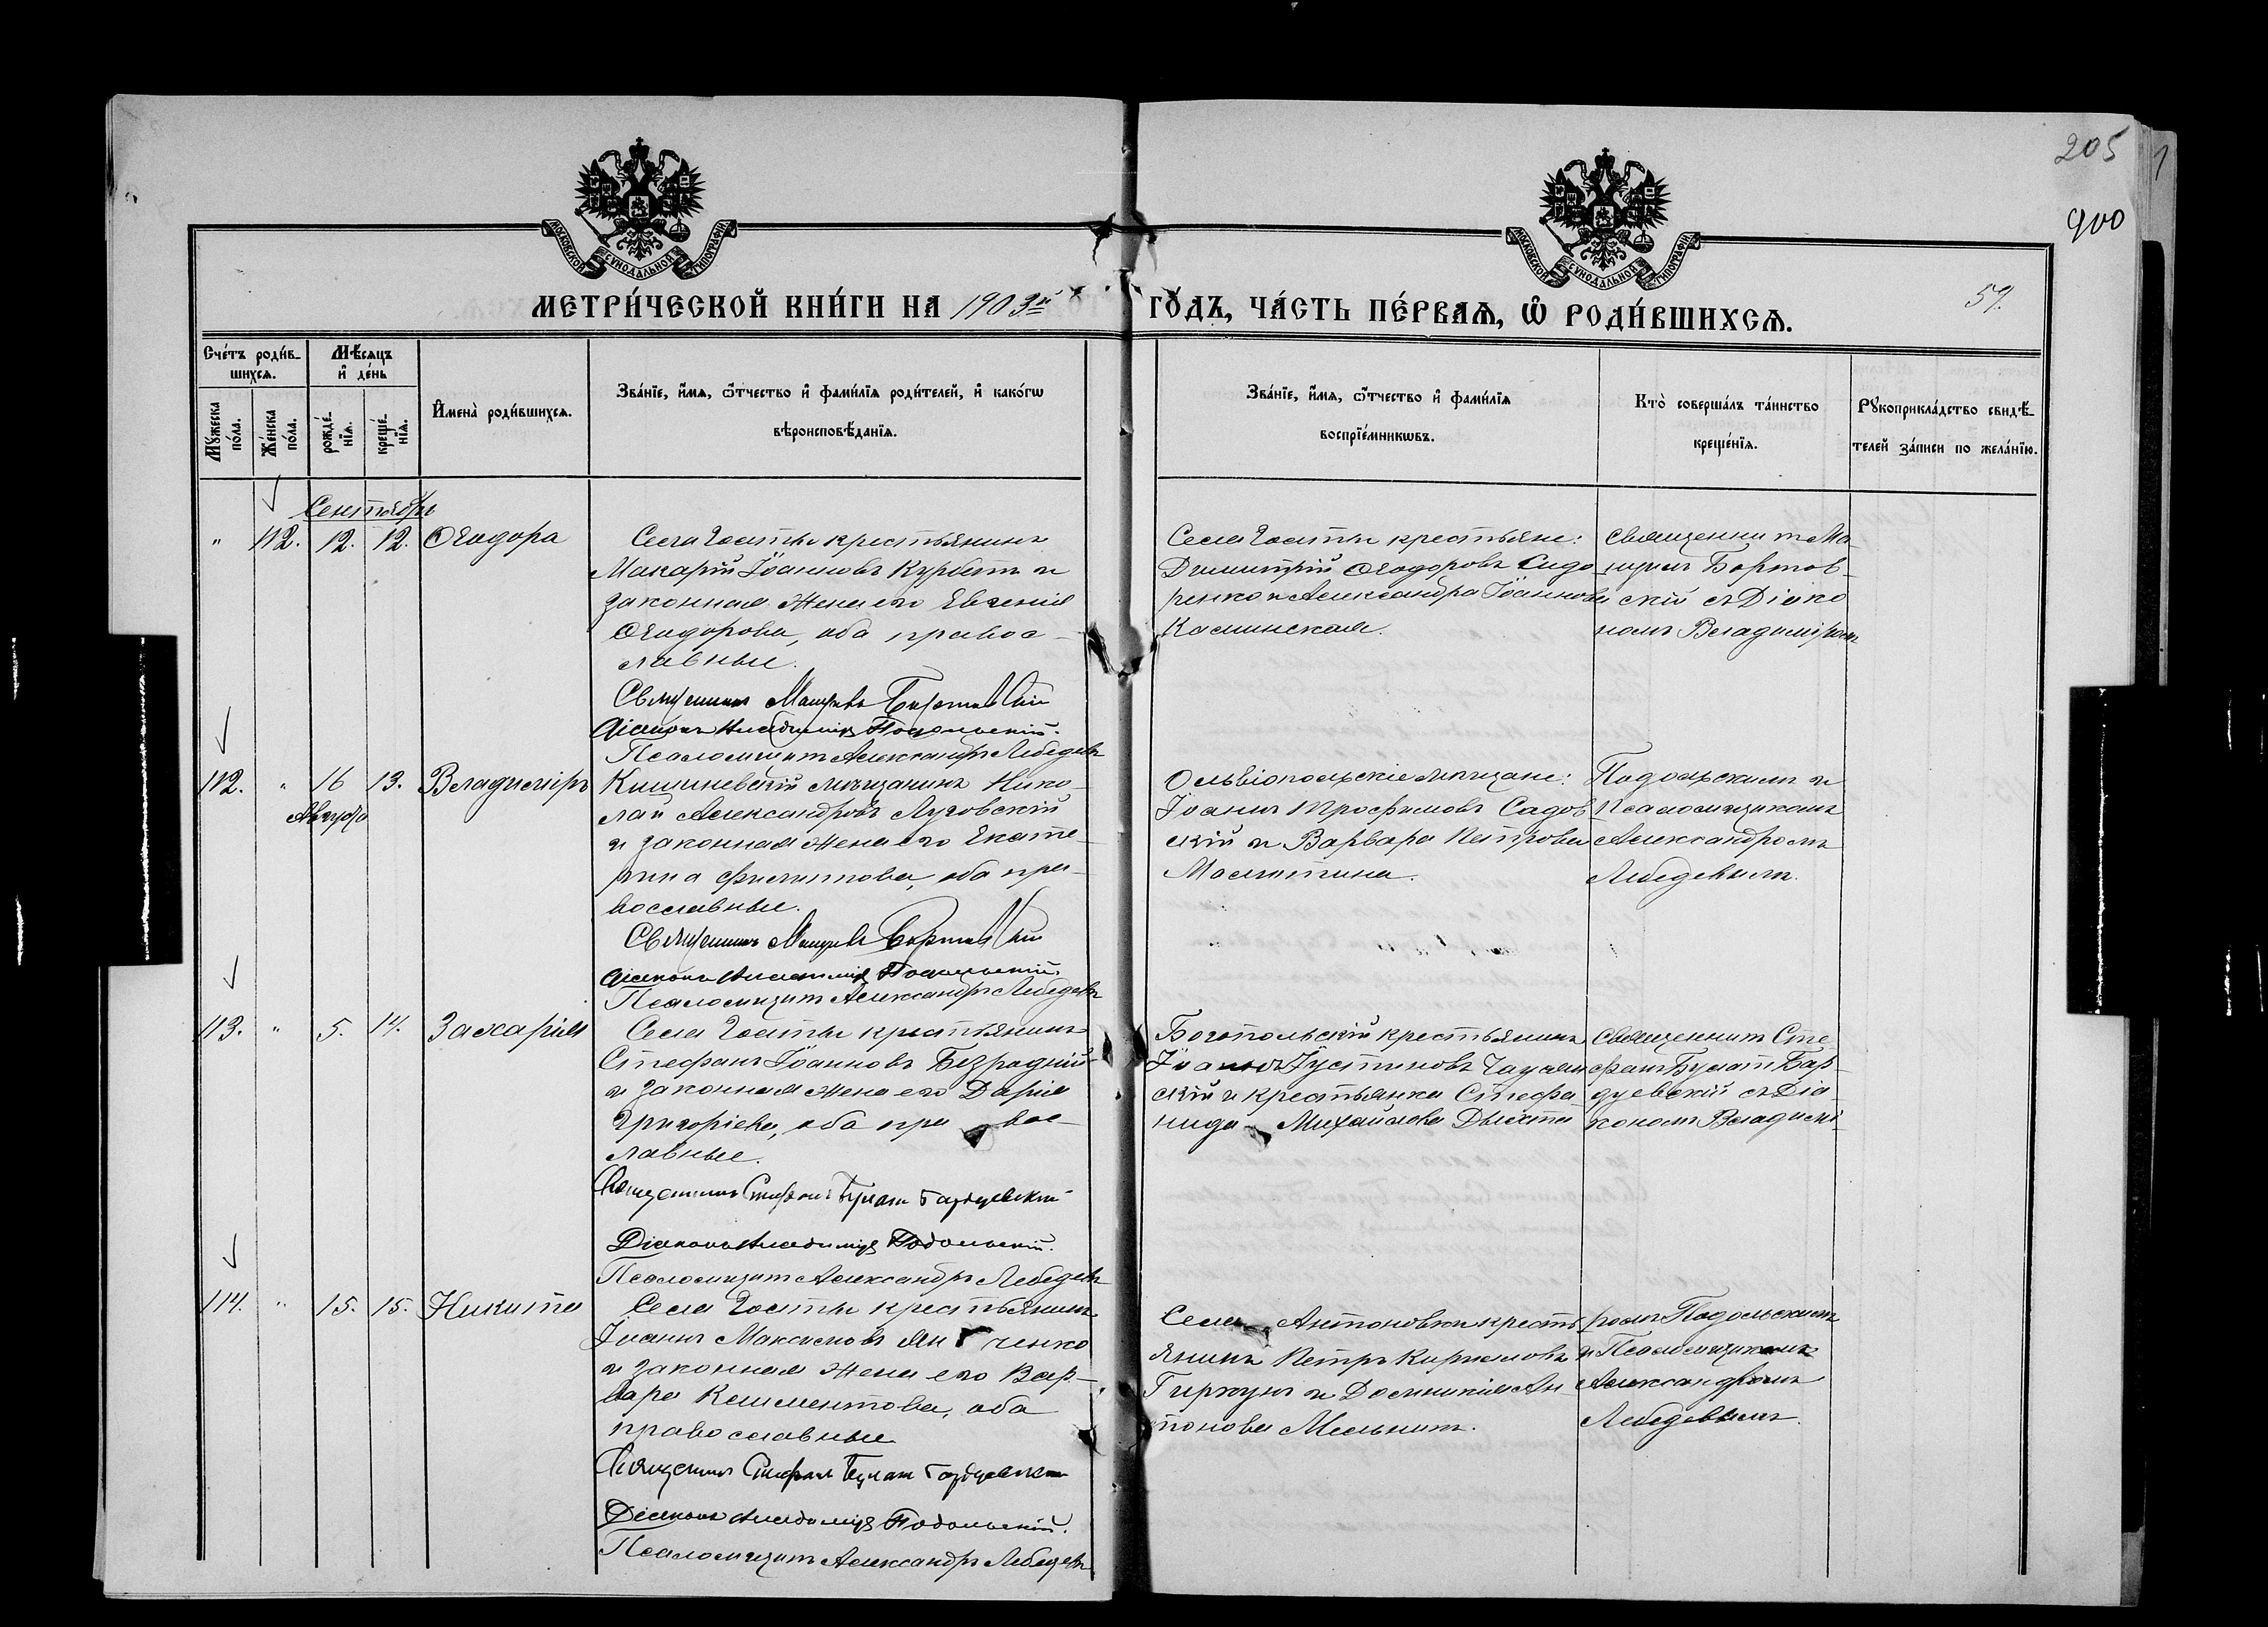 205
1
900
МОСКОВСКОЙ СѴНОДАЛЬНОЙ ТИПОГРАФІИ
МОСКОВСКОЙ СѴНОДАЛЬНОЙ ТИПОГРАФІИ
МЕТРИ́ЧЕСКОЙ КНИ́ГИ НА 1903й ГО́ДЪ, ЧА́СТЬ ПЕ́РВАѦ, Ѡ҆ РОДИ́ВШИХСѦ.
Сче́тъ роди́в-
шихсѧ.
Мѣ́сѧцъ
и҆ де́нь
Мꙋ́жеска
по́ла.
Же́нска
по́ла.
рожде́-
нїѧ.
креще́-
нїѧ.
И҆мена̀ роди́вшихсѧ.
Зва́нїе, и҆́мѧ, ѻ҆́тчество и҆ фами́лїѧ роди́телей, и҆ како́гѡ
вѣроисповѣ́данїѧ.
Зва́нїе, и҆́мѧ, ѻ҆́тчество и҆ фами́лїѧ
воспрїе́мникѡвъ.
Кто̀ соверша́лъ та́инство
креще́нїѧ.
Рꙋкоприкла́дство свидѣ́-
телей за́писи по жела́нїю.
Сентябрь
" 112. 12. 12. Ѳеодора
Села Гоцты крестьянинъ
Макарій Іоанновъ Курбетъ и
законная жена его Евгенія
Ѳеодорова, оба правос-
лавные.
Священникъ
Діаконъ Владиміръ Подольскій.
Псаломщикъ Александръ Лебедевъ
Димитрій Ѳеодоровъ Сидо
ренко и Александра Іоаннова
Каминская.
Священникъ Ма-
скій съ Діако
номъ Владиміромъ
112. " 16 13. Владиміръ
Августа
Кишиневскій мѣщанинъ Нико-
лай Александровъ Луговскій
и законная жена его Екате-
рина Филиппова, оба пра-
вославные.
Священникъ
Діаконъ Владиміръ Подольскій.
Псаломщикъ Александръ Лебедевъ
Ольвіопольскіе мѣщане:
Іоаннъ Трофимовъ Садов
скій и Варвара Петрова
Подольскимъ и
Псаломщикомъ
Александромъ
Лебедевымъ.
113. " 5. 14. Захарія
крестьянинъ
Стефанъ Іоанновъ Безрадній
и законная жена его Дарія
Григоріева, оба правос-
лавные.
Священникъ Стефанъ Булатъ Бардуевскій
Діаконъ Владиміръ Подольскій.
Псаломщикъ Александръ Лебедевъ
Богопольскій крестьянинъ
Іоаннъ Іустиновъ
скій и крестьянка Стефа-
нида Михайлова
Священникъ Сте-
фанъ Булатъ Бар-
дуевскій съ Діа-
кономъ Владимі-
114. " 15. 15. Никита
крестьянинъ
Іоаннъ Максимовъ
и законная жена его Вар-
вара Климентова, оба
православные
Священникъ Стефанъ Булатъ Бардуевскій
Діаконъ Владиміръ Подольскій.
Псаломщикъ Александръ Лебедевъ
Села Антоновки кресть
янинъ Петръ Кирилловъ
и Домникія Ан
тонова Мельникъ.
ромъ Подольскимъ
и Псаломщикомъ
Александромъ
Лебедевымъ.